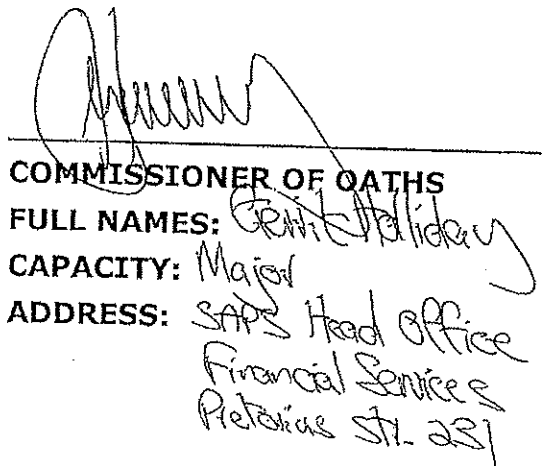 COMMISSIONER OF OATHS
FULL NAMES: Gerrit Holliday
CAPACITY: Major
ADDRESS: SAPS Head Office
Financial Services
Pretorius str. 231